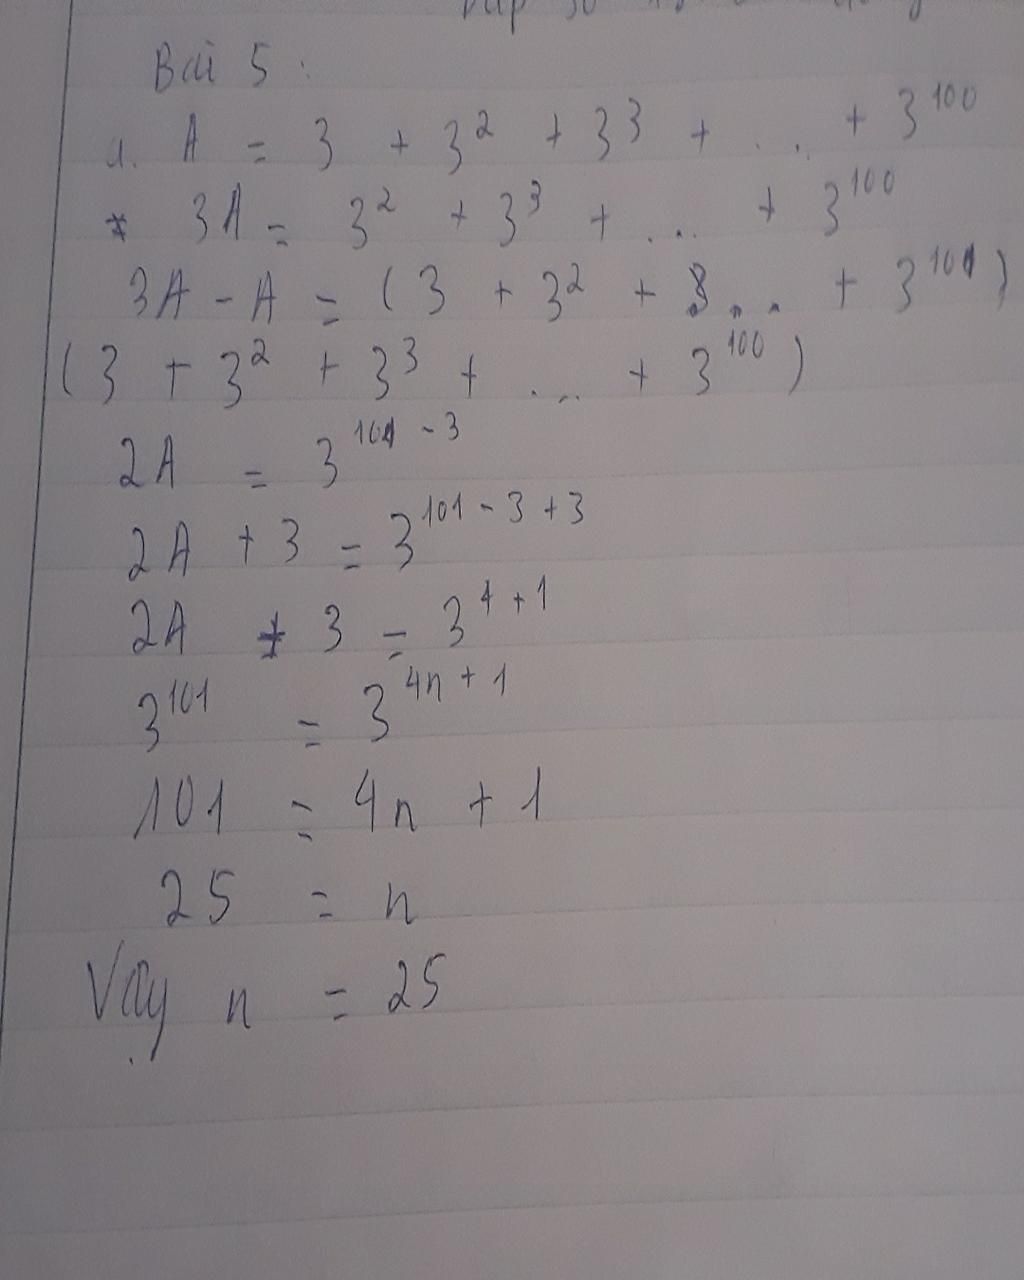 Bài 5:
a. A = 3 + 3² + 3³ + ... + 3¹⁰⁰
* 3A = 3² + 3³ + ... + 3¹⁰⁰
3A - A = (3 + 3² + 3... + 3¹⁰¹)
(3 + 3² + 3³ + ... + 3¹⁰⁰)
2A = 3¹⁰¹⁻³
2A + 3 = 3¹⁰¹⁻³⁺³
2A + 3 = 3⁴⁺¹
3¹⁰¹ = 3⁴ⁿ⁺¹
101 = 4n + 1
25 = n
Vậy n = 25